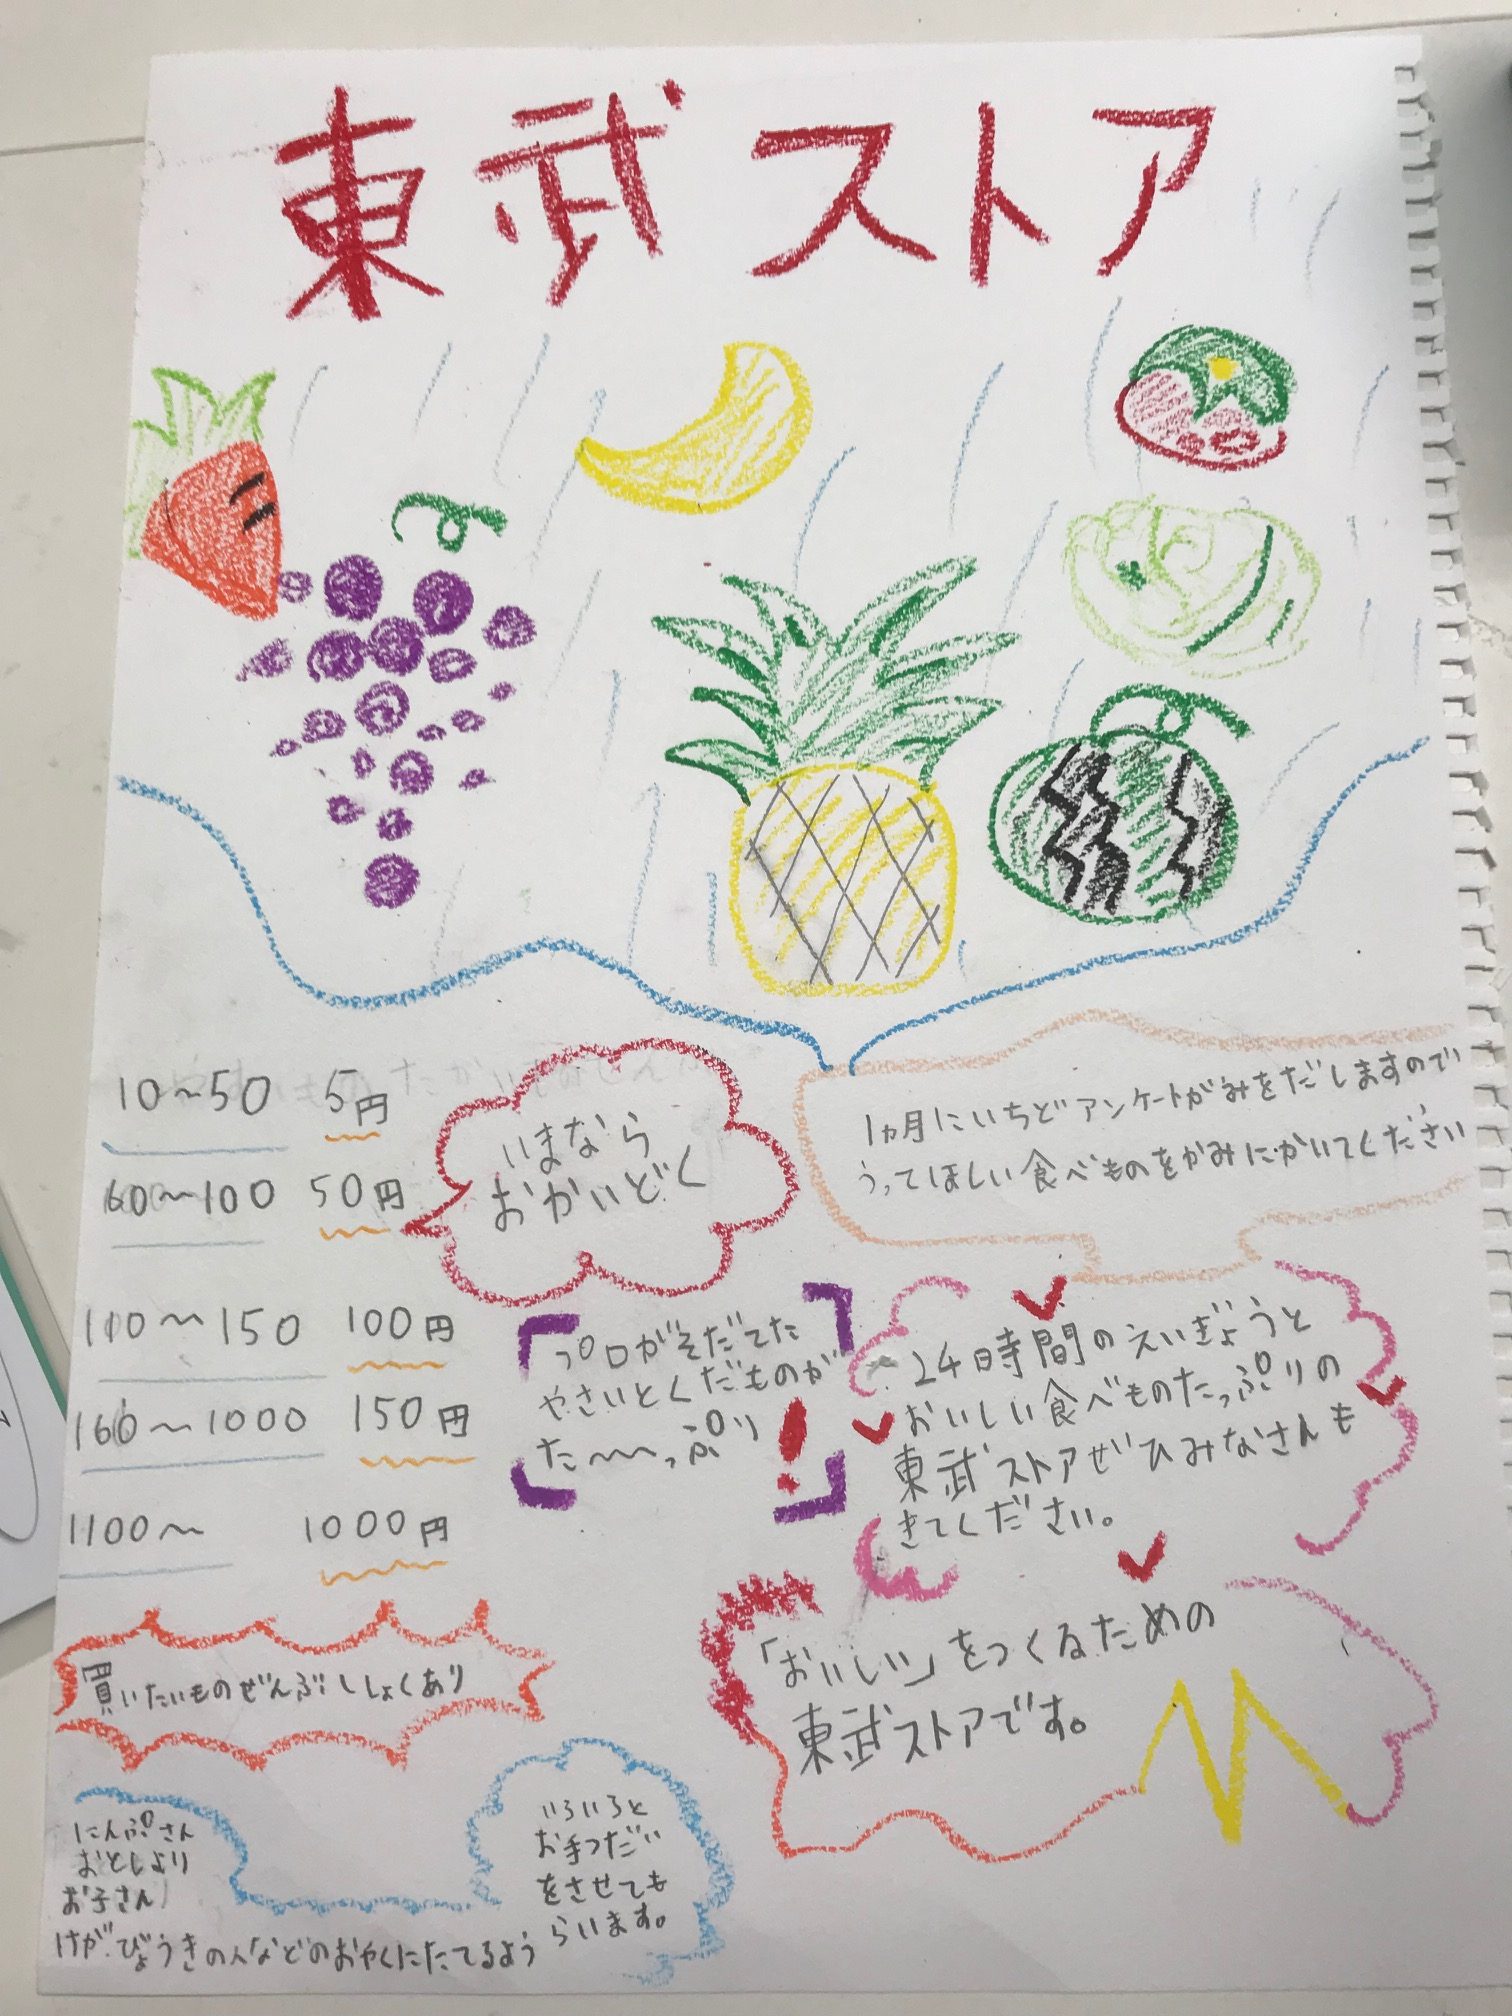 東武ストア
10〜50 5円
60〜100 50円
110〜150 100円
160〜1000 150円
1100〜 1000円
いまなら
おかいどく
1ヵ月にいちどアンケートがみをだしますので
うってほしい食べものをかみにかいてください
プロがそだてた
やさいとくだものが
た〜〜っぷり
!
24時間のえいぎょうと
おいしい食べものたっぷりの
東武ストアぜひみなさんも
きてください。
買いたいものぜんぶししょくあり
「おいしい」をつくるための
東武ストアです。
にんぷさん
おとしより
お子さん
けが.びょうきの人などのおやくにたてるよう
いろいろと
お手つだい
をさせても
らいます。